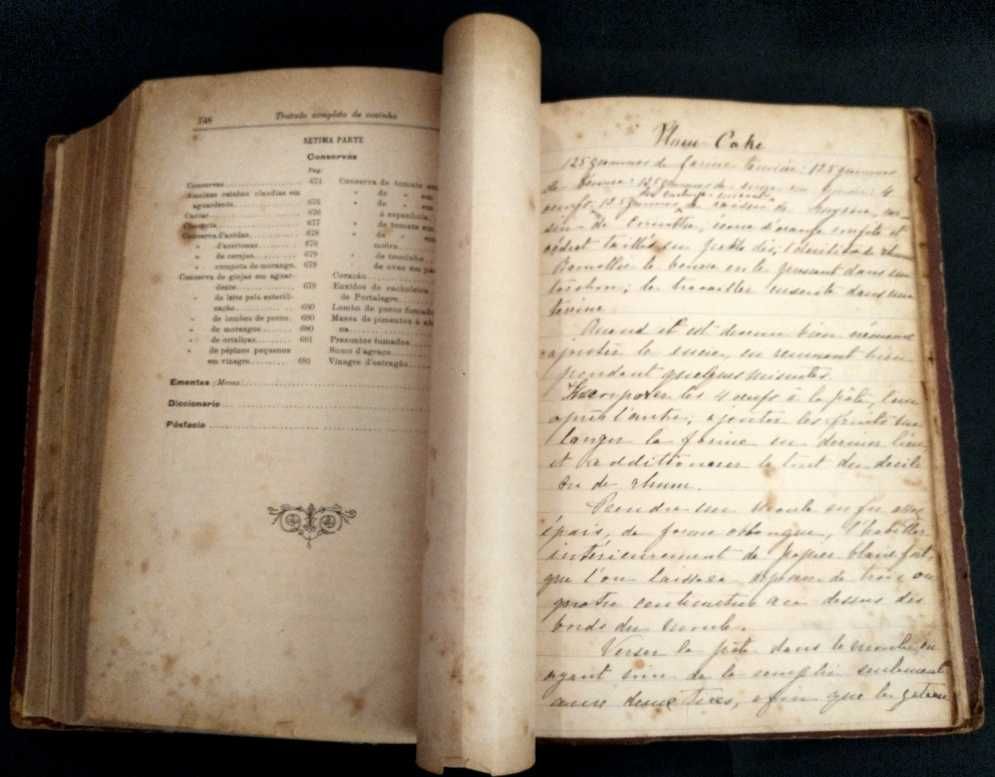 748
Tratado completo de cozinha
SETIMA PARTE
Conservas
Pag.
Conservas 671
Ameixas rainhas claudias em
aguardente 675
Caviar 676
677
Conserva d'azedas 678
» d'azeitonas 679
» de cerejas 679
» compota de morango. 679
Conserva de ginjas em aguar-
dente 679
» de leite pela esterili-
sação 680
» de lombo de porco 680
» de morangos 680
» de ortaliças 681
» de pepinos pequenos
em vinagre 681
Conserva de tomate em
» de » em
» de » em
á espanhola
» de tomate em
» de » em
moira
» de toucinho
» de ovas em
Coração
Enxidos de cacholeira
de Portalegre
Lombo de porco fumado
Massa de pimentos
na
Presuntos fumados
Sumo d'agraço
Vinagre d'estragão
Ementas (Menus)
Diccionario
Pósfacio
Plum Cake
125 grammes de farine tamisée: 125 grammes
de beurre: 125 grammes de sucre en 4
oeufs, 125 grammes de raisin de
de Corinthe, écorce d'orange confite et
cédrat taillés en petits dés, 1 décilitre de rhum
Ramollir le beurre en le pressant dans un
torchon; le travailler ensuite dans une
terrine.
Quand il est devenu bien crémeux
ajouter le sucre, en remuant bien
pendant quelques minutes.
Incorporer les 4 oeufs à la pâte, l'un
après l'autre, ajouter les fruits
langer la farine en dernier lieu,
et additionner le tout du décili-
tre de rhum.
Prendre un moule en fer assez
épais, de forme oblongue, l'habiller
intérieurement de papier blanc fort,
que l'on laissera dépasser de trois ou
quatre centimètres au dessus des
bords du moule.
Verser la pâte dans le moule, en
ayant soin de le remplir seulement
aux deux tiers, afin que le gateau